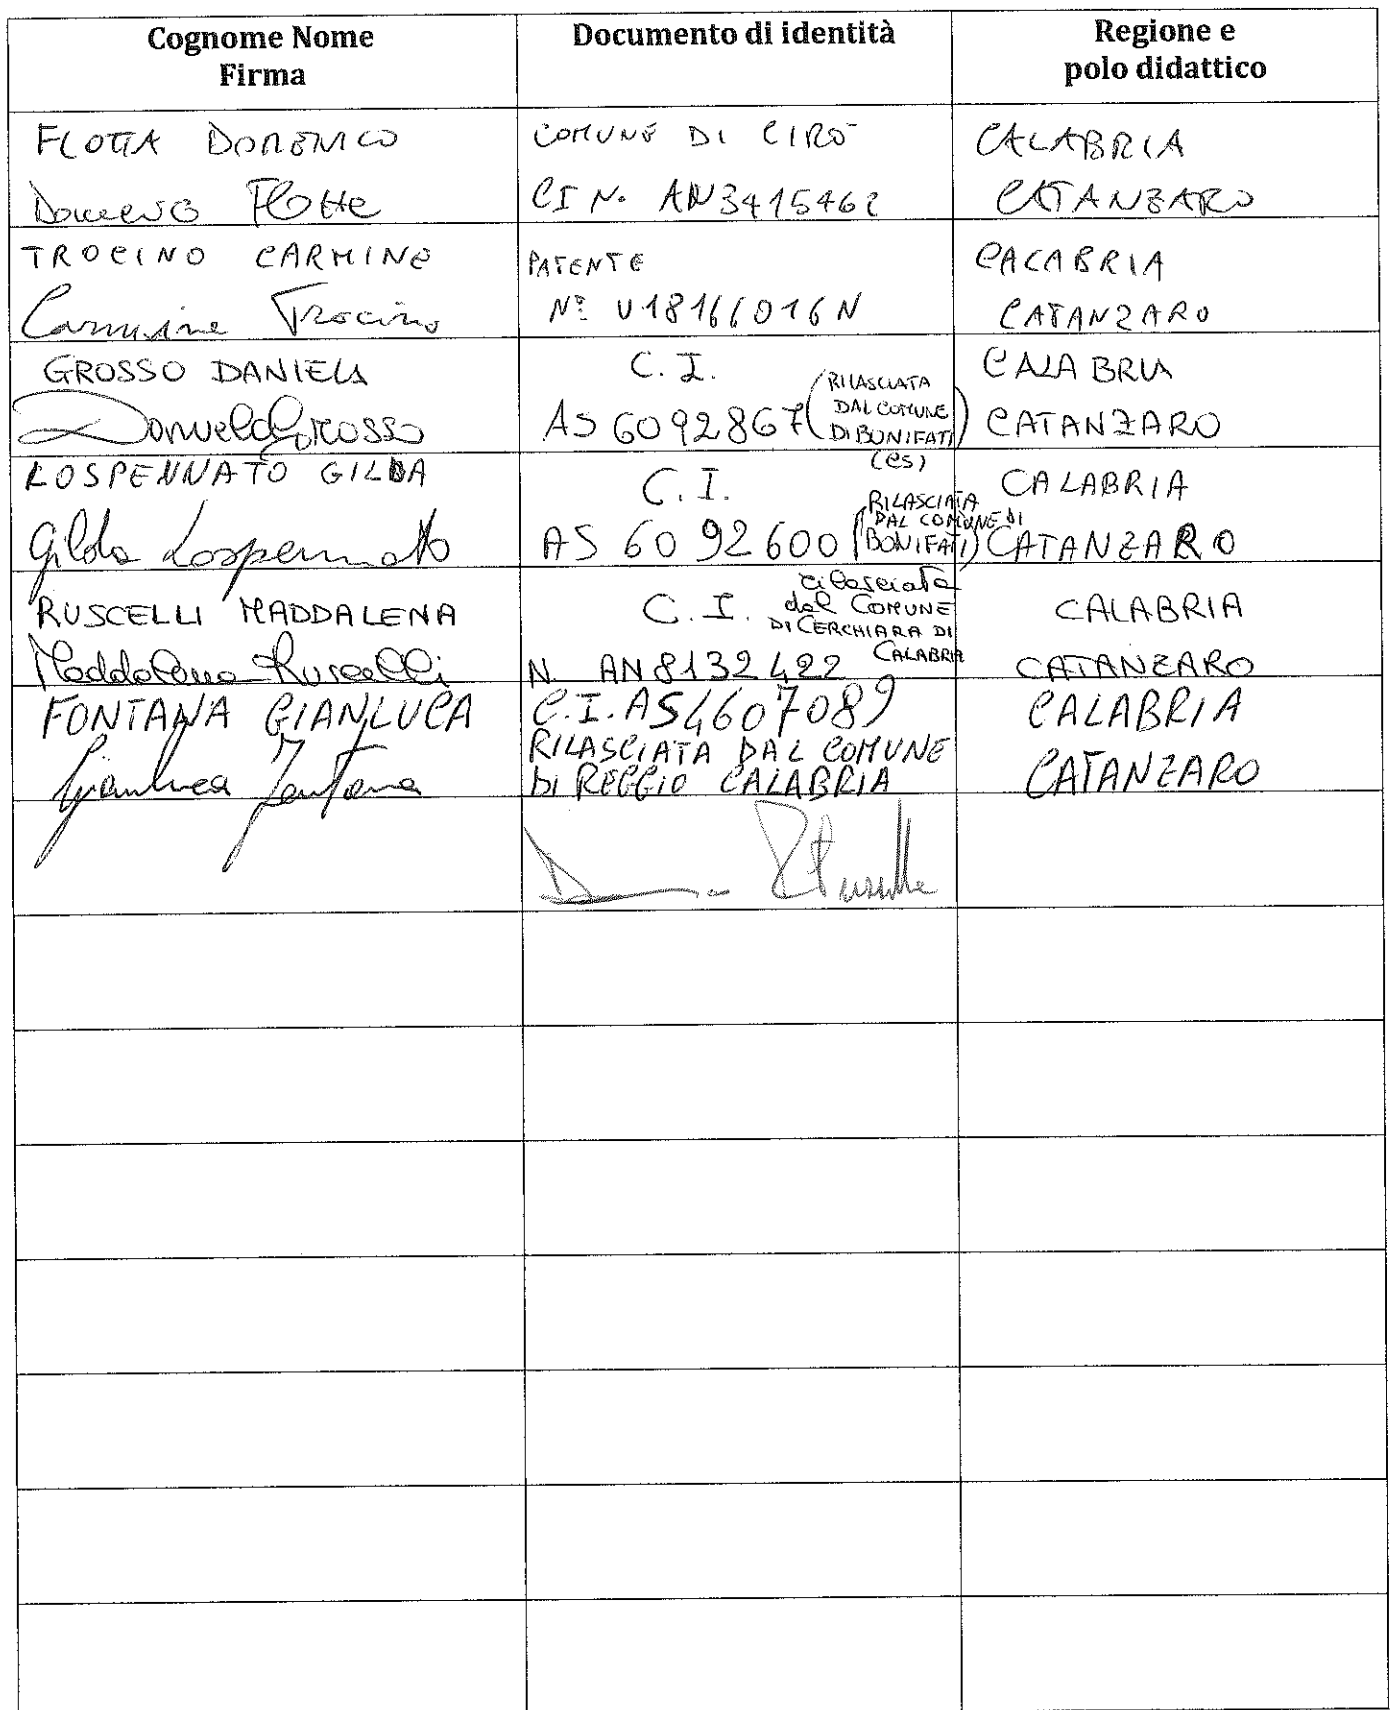 Cognome Nome
Firma
Documento di identità
Regione e
polo didattico
FLOTTA DOMENICO
Domenico Flotta
COMUNE DI CIRÒ
CI N. AN3415462
CALABRIA
CATANZARO
TROCINO CARMINE
Carmine Trocino
PATENTE
N° U18166016N
CALABRIA
CATANZARO
GROSSO DANIELA
Daniela Grosso
C. I.
AS 6092867 (RILASCIATA
DAL COMUNE
DI BONIFATI)
(CS)
CALABRIA
CATANZARO
LOSPENNATO GILDA
Gilda Lospennato
C. I.
AS 6092600 (RILASCIATA
DAL COMUNE DI
BONIFATI)
CALABRIA
CATANZARO
RUSCELLI MADDALENA
Maddalena Ruscelli
C. I. rilasciata
dal COMUNE
DI CERCHIARA DI
CALABRIA
N. AN8132422
CALABRIA
CATANZARO
FONTANA GIANLUCA
Gianluca Fontana
C.I. AS4607089
RILASCIATA DAL COMUNE
DI REGGIO CALABRIA
CALABRIA
CATANZARO